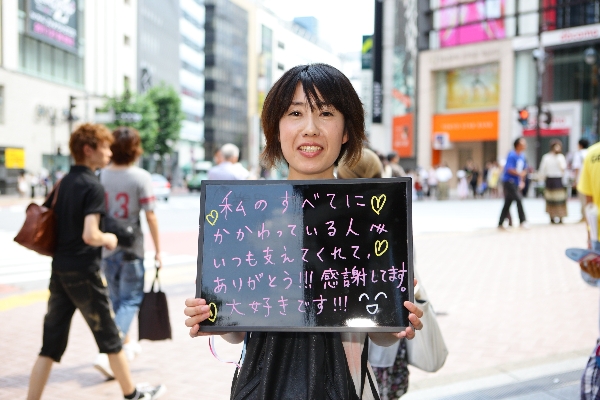 私のすべてに
かかわっている人々
いつも支えてくれて、
ありがとう!!! 感謝してます。
大好きです!!!
13